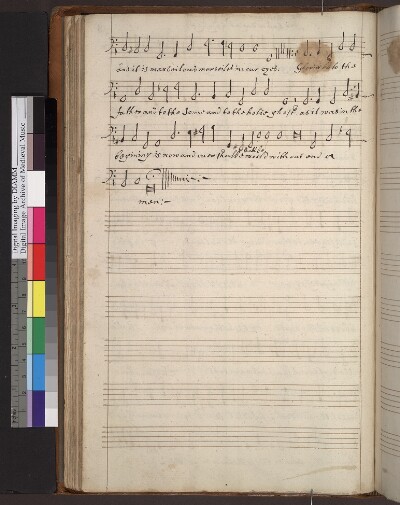 and it is marvailous marvailous in our eyes. Glorie be to the
father and to the sonne and to the holie ghost as it was in the
begining is now and ever shalbe world without end a
men:
Digital Imaging by DIAMM
Digital Image Archive of Medieval Music